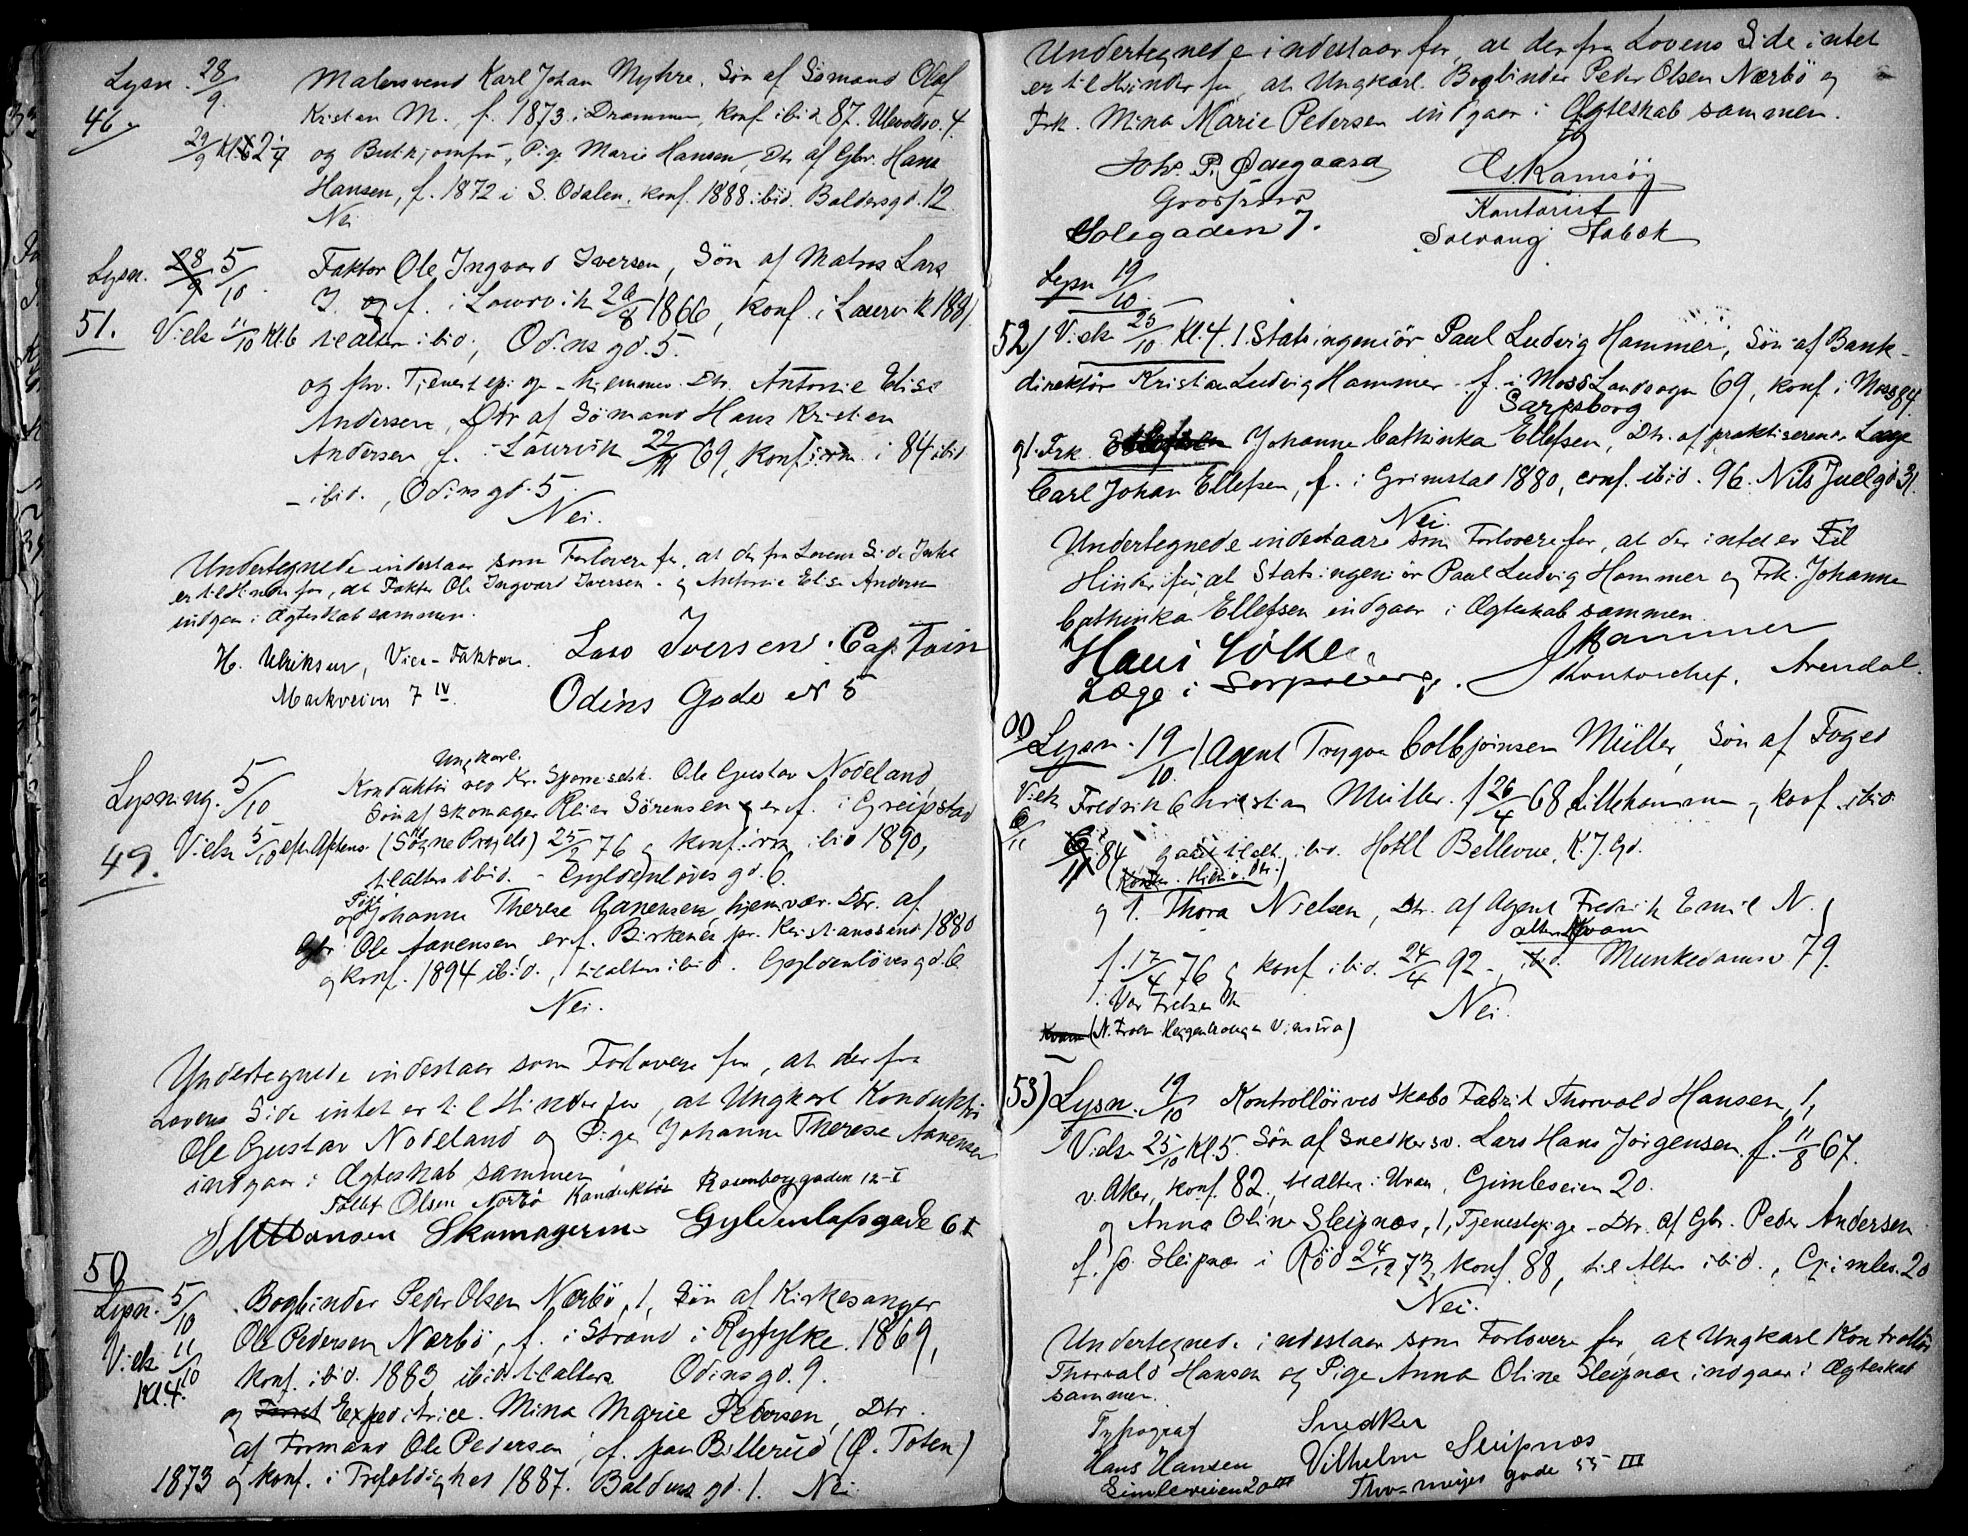 Lysn. 28/9. Malersvend Karl Johan Myhre. Søn af Sømand Olaf
46. Kristian M., f. 1873 i Drammen, konf ibid 87. Ullevoldsv. 4.
29/9 Kl. og Butikjomfru, Pige Marie Hansen, Dtr. af Gbr. Hans
Hansen, f. 1872 i S. Odalen, konf. 1888 ibid. Baldersgd. 12
Nei
Lysn. 28/9 5/10. Faktor Ole Ingvard Iversen, Søn af Matros Lars
I. og f. i Laurvik 20/8 1866, konf. i Laurvik 1881
51. Viels 11/10 Kl. 6 tilalters ibid., Odins gd. 5.
og Antonie Elise
Andersen, Dtr af Sømand Hans Kristian
Andersen f. i Laurvik 22/11 69, konfirm i 84 ibid
– ibid., Odins gd. 5.
Nei.
Undertegnede indestaar som Forlovere for, at der fra Lovens Side Intet
er til Hinder for, at Faktor Ole Ingvard Iversen og Antonie Elise Andersen
indgaar i Ægteskab sammen.
H. Ulriksen, Vice-Faktor. Lars Iversen. Captain
Markveien 7 IV. Odins Gade N 5
Ungkarl.
Lysning. 5/10 Konduktør ved Kr. Sporveisselsk. Ole Gustav Nodeland
Søn af Skomager Reier Sørensen er f. i Greipstad
Viels 5/10 eft. Aftens. (Søgne Prgjeld) 25/2 76 og konfirm ibid 1890,
49. tilalters ibid. – Gyldenløves gd. 6.
Pige
og Johanne Therese Aanensen, hjemvær. Dtr. af
Gbr. Ole Aanensen er f. Birkenes pr. Kristianssand 1880
og konf. 1894 ibid., tilalters ibid. Gyldenløves gd. 6.
Nei.
Undertegnede indestaar som Forlovere for, at der fra
Lovens Side intet er til Hinder for, at Ungkarl Konduktør
Ole Gustav Nodeland og Pige Johanne Therese Aanensen
indgaar i Ægteskab sammen
Olsen Konduktør Rosenborggaden 12-I
Skomagerm. Gyldenløfsgade 6 I
50
Lysn. 5/10 Bogbinder Peder Olsen Nærbö, 1, Søn af Kirkesanger
Ole Pedersen Nærbö, f. i Strand i Ryfylke 1869,
Viels 11/10 konf. ibid. 1883 ibid tilalters Odins gd. 9.
Kl. 4. og Expeditrice. Mina Marie Pedersen, Dtr.
af Formand Ole Pedersen, f. paa Billerud (Ø. Toten)
1873 og konf. i Trefoldighed 1887. Balders gd. 1. Nei
Undertegnede indestaar for, at der fra Lovens Side intet
er til Hinder for, at Ungkarl. Bogbinder Peder Olsen Nærbö og
Frk. Mina Marie Pedersen indgaar i Ægteskab sammen.
Johs. P. Ødegaard Kontorist
Solvang Stabæk
Lysn 19/10.
52) Viels 25/10 Kl. 4. 1. Statsingeniør Paul Ludvig Hammer, Søn af Bank-
direktør Kristian Ludvig Hammer – f. i Moss Landsogn 69, konf. i Moss 84.
Sarpsborg
og 1. Frk. Johanne Cathinka Ellefsen, Dtr. af praktiserende Læge
Carl Johan Ellefsen, f. i Grimstad 1880, conf. ibid. 96. Nils Juelgd 31.
Nei.
Undertegnede indestaar som Forlovere for, at der intet er Til
Hinder for, at Statsingeniør Paul Ludvig Hammer og Frk. Johanne
Cathinka Ellefsen indgaar i Ægteskab sammen.
Hans Hammer
Læge i Sarpsborg. Kontorchef, Arendal.
Lysn. 19/10. 1 Agent Trygve Colbjørnsen Müller, Søn af Foged
Viels 6/11 Fredrik Christian Müller. f 26/4 68 Lillehammer, konf. ibid
84 ibid. Hotell Bellevue, K. J. Gd.
og 1. Thora Nielsen, Dtr. af Agent Fredrik Emil N.,
f. 17/4 76 og konf ibid. 24/4 92 – ibid. Munkedamsv. 79.
i Vor Frelser
Nei.
53) Lysn. 19/10 Kontrollör ved Skabo Fabrik Thorvald Hansen, 1,
Viels 25/10 Kl. 5. Søn af Snedkersv. Lars Hans Jörgensen. f. 11/8 67.
v. Aker, konf. 82., tilalters i Uran. Gimleveien 20.
og Anna Oline Sleipnæs, 1, Tjenestepige – Dtr. af Gbr. Peder Andersen
f. på Sleipnæs i Röd 24/12 73, konf. 88, til Alters ibid., Gimlev. 20
Nei.
Undertegnede indestaar som Forlovere for, at Ungkarl Kontrollör
Thorvald Hansen og Pige Anna Oline Sleipnæs indgaar i Ægteskab
sammen.
Typograf Snedker
Hans Hansen Vilhelm Sleipnæs
Gimleveien 20 III Thor Meyers gade 55 III